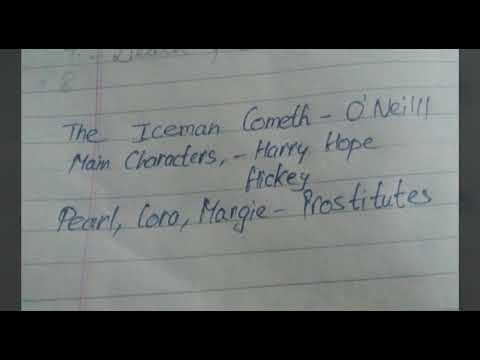 The Iceman Cometh - O'Neilll
Main Characters, - Harry Hope
Hickey
Pearl, Cora, Margie - Prostitutes